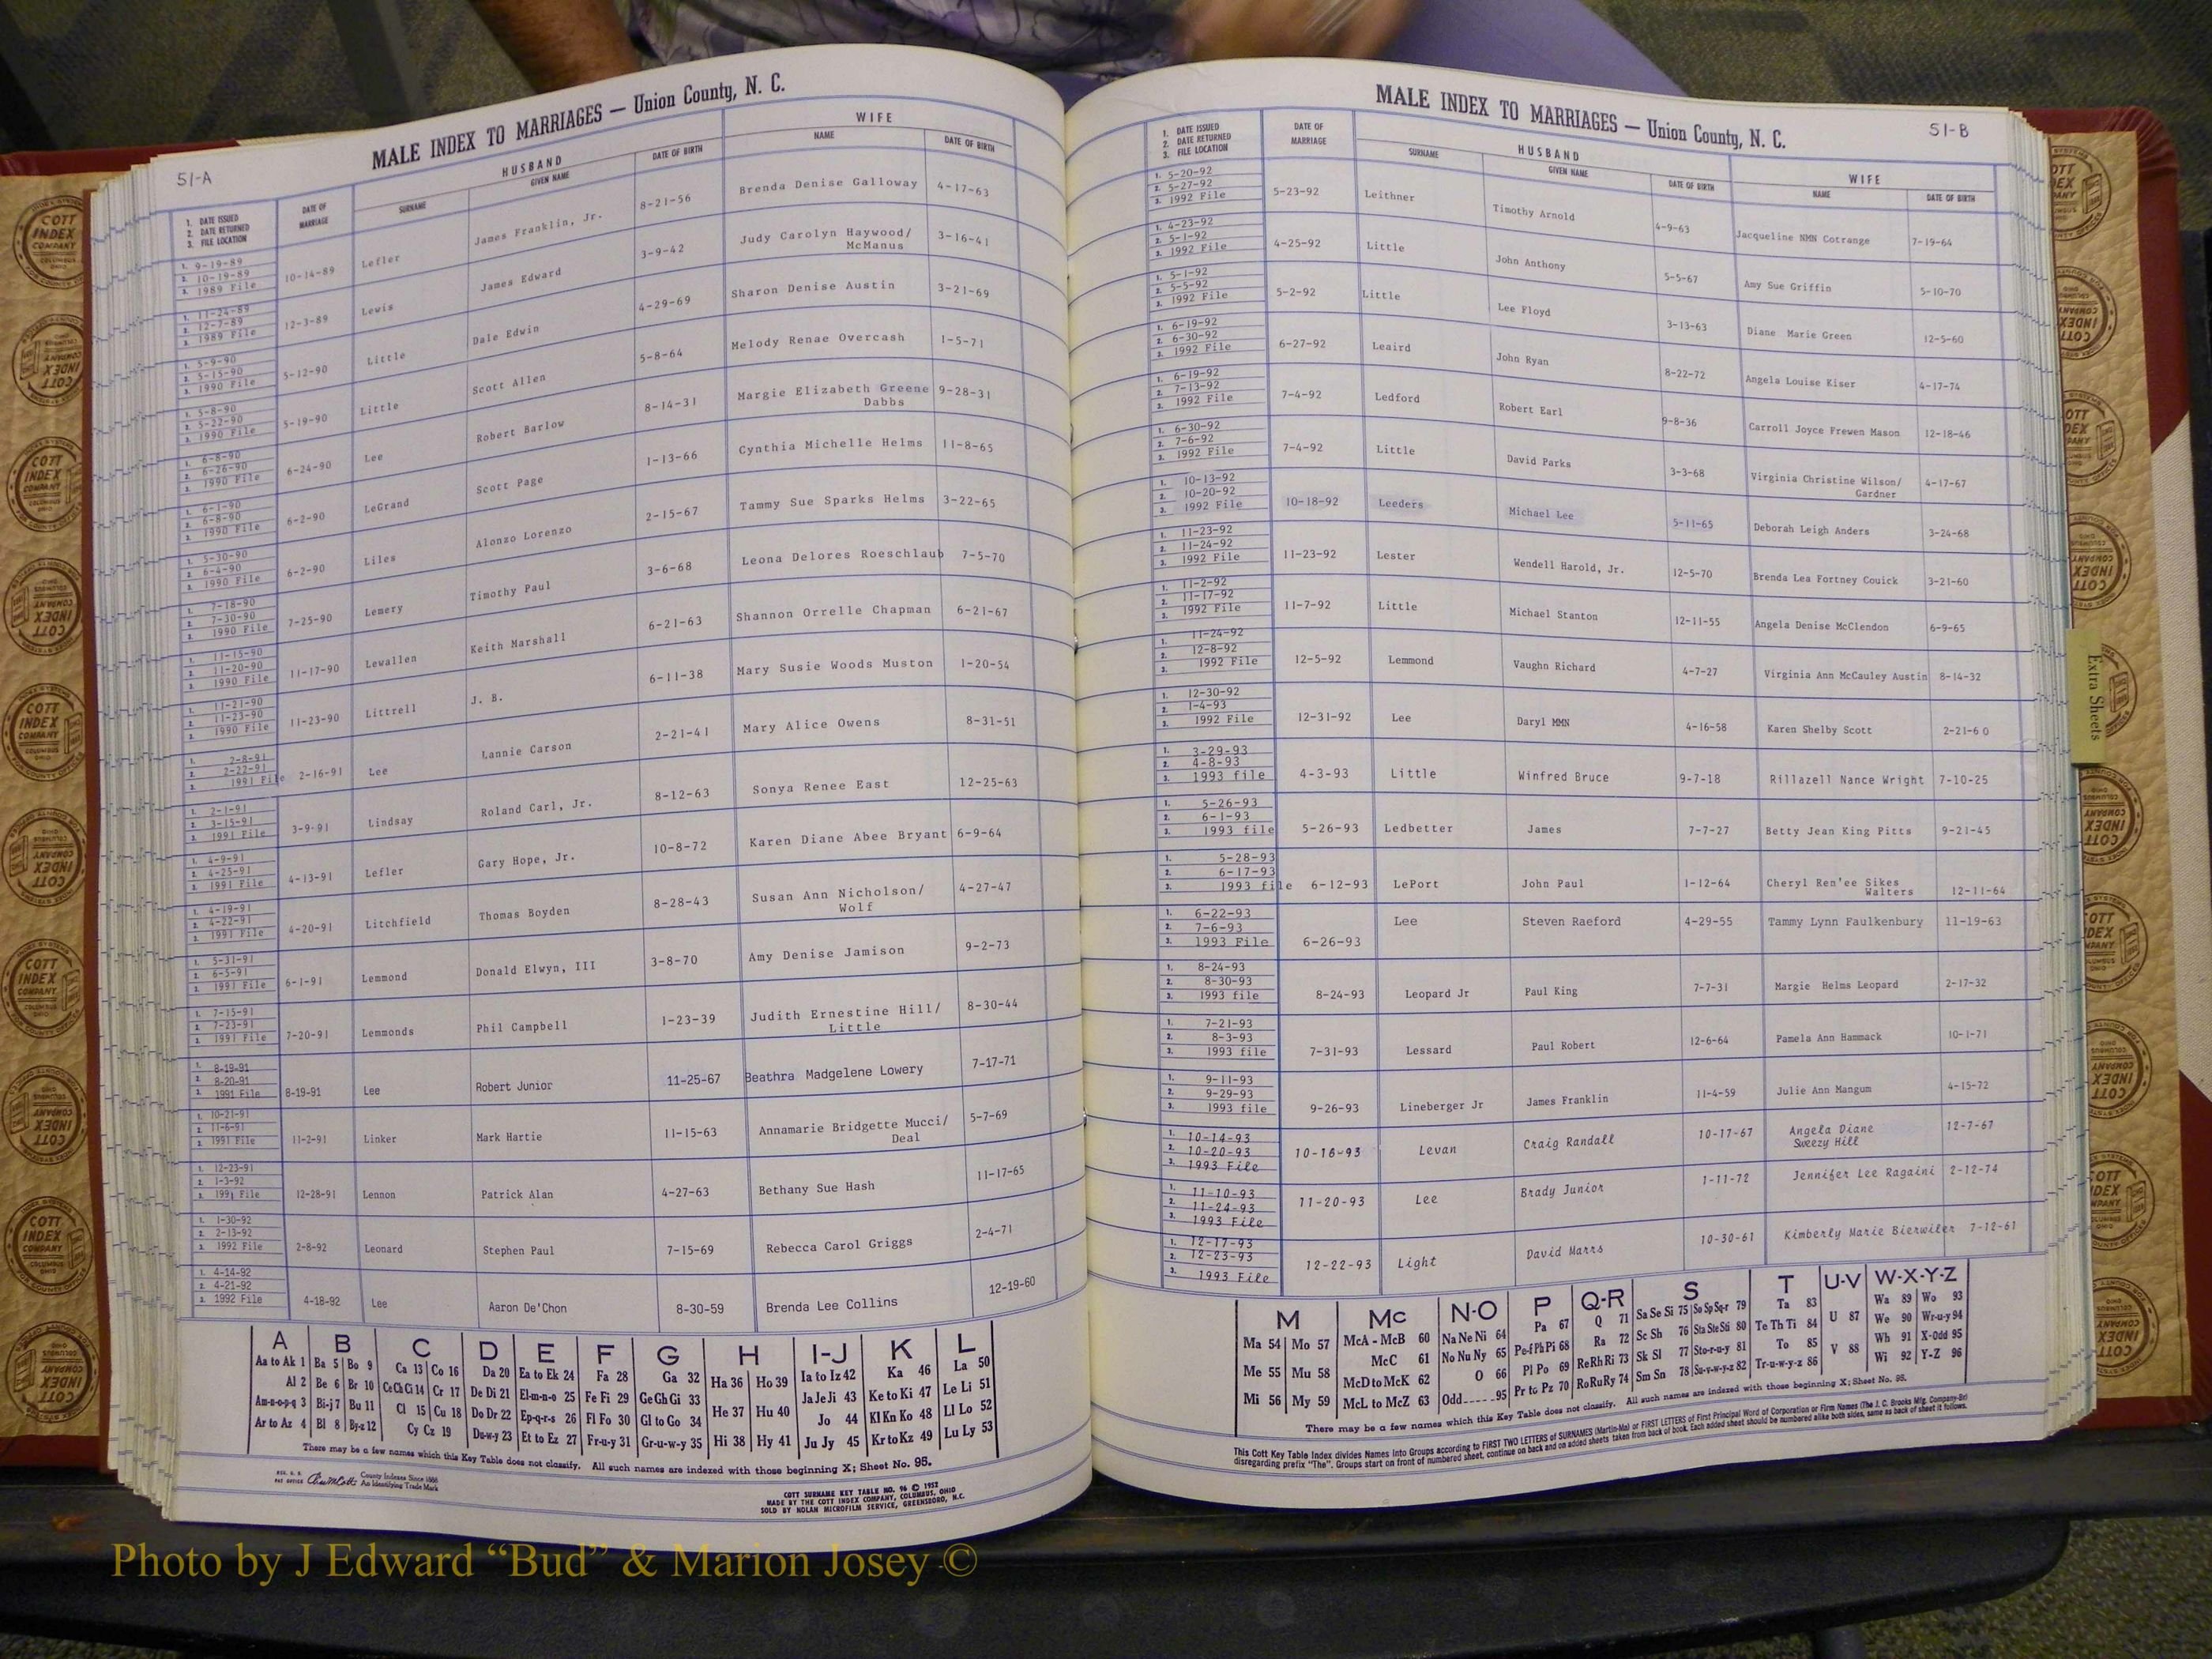 MALE INDEX TO MARRIAGES — Union County, N. C.
51-A
1. DATE ISSUED
2. DATE RETURNED
3. FILE LOCATION
DATE OF MARRIAGE
HUSBAND
SURNAME
GIVEN NAME
DATE OF BIRTH
WIFE
NAME
DATE OF BIRTH
1. 9-19-89
2. 10-19-89
3. 1989 File
10-14-89 Lefler James Franklin, Jr. 8-21-56 Brenda Denise Galloway 4-17-63
1. 11-24-89
2. 12-7-89
3. 1989 File
12-3-89 Lewis James Edward 3-9-42 Judy Carolyn Haywood/ 3-16-41
McManus
1. 5-9-90
2. 5-15-90
3. 1990 File
5-12-90 Little Dale Edwin 4-29-69 Sharon Denise Austin 3-21-69
1. 5-8-90
2. 5-22-90
3. 1990 File
5-19-90 Little Scott Allen 5-8-64 Melody Renae Overcash 1-5-71
1. 6-8-90
2. 6-26-90
3. 1990 File
6-24-90 Lee Robert Barlow 8-14-31 Margie Elizabeth Greene 9-28-31
Dabbs
1. 6-1-90
2. 6-8-90
3. 1990 File
6-2-90 LeGrand Scott Page 1-13-66 Cynthia Michelle Helms 11-8-65
1. 5-30-90
2. 6-4-90
3. 1990 File
6-2-90 Liles Alonzo Lorenzo 2-15-67 Tammy Sue Sparks Helms 3-22-65
1. 7-18-90
2. 7-30-90
3. 1990 File
7-25-90 Lemery Timothy Paul 3-6-68 Leona Delores Roeschlaub 7-5-70
1. 11-15-90
2. 11-20-90
3. 1990 File
11-17-90 Lewallen Keith Marshall 6-21-63 Shannon Orrelle Chapman 6-21-67
1. 11-21-90
2. 11-23-90
3. 1990 File
11-23-90 Littrell J. B. 6-11-38 Mary Susie Woods Muston 1-20-54
1. 2-8-91
2. 2-22-91
3. 1991 File
2-16-91 Lee Lannie Carson 2-21-41 Mary Alice Owens 8-31-51
1. 2-1-91
2. 3-15-91
3. 1991 File
3-9-91 Lindsay Roland Carl, Jr. 8-12-63 Sonya Renee East 12-25-63
1. 4-9-91
2. 4-25-91
3. 1991 File
4-13-91 Lefler Gary Hope, Jr. 10-8-72 Karen Diane Abee Bryant 6-9-64
1. 4-19-91
2. 4-22-91
3. 1991 File
4-20-91 Litchfield Thomas Boyden 8-28-43 Susan Ann Nicholson/ 4-27-47
Wolf
1. 5-31-91
2. 6-5-91
3. 1991 File
6-1-91 Lemmond Donald Elwyn, III 3-8-70 Amy Denise Jamison 9-2-73
1. 7-15-91
2. 7-23-91
3. 1991 File
7-20-91 Lemmonds Phil Campbell 1-23-39 Judith Ernestine Hill/ 8-30-44
Little
1. 8-19-91
2. 8-20-91
3. 1991 File
8-19-91 Lee Robert Junior 11-25-67 Beathra Madgelene Lowery 7-17-71
1. 10-21-91
2. 11-6-91
3. 1991 File
11-2-91 Linker Mark Hartie 11-15-63 Annamarie Bridgette Mucci/ 5-7-69
Deal
1. 12-23-91
2. 1-3-92
3. 1991 File
12-28-91 Lennon Patrick Alan 4-27-63 Bethany Sue Hash 11-17-65
1. 1-30-92
2. 2-13-92
3. 1992 File
2-8-92 Leonard Stephen Paul 7-15-69 Rebecca Carol Griggs 2-4-71
1. 4-14-92
2. 4-21-92
3. 1992 File
4-18-92 Lee Aaron De'Chon 8-30-59 Brenda Lee Collins 12-19-60
A B C D E F G H I-J K L
Aa to Ak 1 Ba 5 Bo 9 Ca 13 Co 16 Da 20 Ea to Ek 24 Fa 28 Ga 32 Ha 36 Ho 39 Ia to Iz 42 Ka 46 La 50
Al 2 Be 6 Br 10 Ce Ch Ci 14 Cr 17 De Di 21 El-m-n-o 25 Fe Fi 29 Ge Gh Gi 33 Ja Je Ji 43 Ke to Ki 47 Le Li 51
Am-n-o-p-q 3 Bi-j 7 Bu 11 Cl 15 Cu 18 Do Dr 22 Ep-q-r-s 26 Fl Fo 30 Gl to Go 34 He 37 Hu 40 Jo 44 Kl Kn Ko 48 Ll Lo 52
Ar to Az 4 Bl 8 By-z 12 Cy Cz 19 Du-w-y 23 Et to Ez 27 Fr-u-y 31 Gr-u-w-y 35 Hi 38 Hy 41 Ju Jy 45 Kr to Kz 49 Lu Ly 53
There may be a few names which this Key Table does not classify. All such names are indexed with those beginning X; Sheet No. 95.
County Indexes Since 1888
An Identifying Trade Mark
COTT SURNAME KEY TABLE NO. 96 © 1952
MADE BY THE COTT INDEX COMPANY, COLUMBUS, OHIO
SOLD BY NOLAN MICROFILM SERVICE, GREENSBORO, N.C.
MALE INDEX TO MARRIAGES — Union County, N. C.
51-B
1. DATE ISSUED
2. DATE RETURNED
3. FILE LOCATION
DATE OF MARRIAGE
HUSBAND
SURNAME
GIVEN NAME
DATE OF BIRTH
WIFE
NAME
DATE OF BIRTH
1. 5-20-92
2. 5-27-92
3. 1992 File
5-23-92 Leithner Timothy Arnold 4-9-63 Jacqueline NMN Cotrange 7-19-64
1. 4-23-92
2. 5-1-92
3. 1992 File
4-25-92 Little John Anthony 5-5-67 Amy Sue Griffin 5-10-70
1. 5-1-92
2. 5-5-92
3. 1992 File
5-2-92 Little Lee Floyd 3-13-63 Diane Marie Green 12-5-60
1. 6-19-92
2. 6-30-92
3. 1992 File
6-27-92 Leaird John Ryan 8-22-72 Angela Louise Kiser 4-17-74
1. 6-19-92
2. 7-13-92
3. 1992 File
7-4-92 Ledford Robert Earl 9-8-36 Carroll Joyce Frewen Mason 12-18-46
1. 6-30-92
2. 7-6-92
3. 1992 File
7-4-92 Little David Parks 3-3-68 Virginia Christine Wilson/ 4-17-67
Gardner
1. 10-13-92
2. 10-20-92
3. 1992 File
10-18-92 Leeders Michael Lee 5-11-65 Deborah Leigh Anders 3-24-68
1. 11-23-92
2. 11-24-92
3. 1992 File
11-23-92 Lester Wendell Harold, Jr. 12-5-70 Brenda Lea Fortney Couick 3-21-60
1. 11-2-92
2. 11-17-92
3. 1992 File
11-7-92 Little Michael Stanton 12-11-55 Angela Denise McClendon 6-9-65
1. 11-24-92
2. 12-8-92
3. 1992 File
12-5-92 Lemmond Vaughn Richard 4-7-27 Virginia Ann McCauley Austin 8-14-32
1. 12-30-92
2. 1-4-93
3. 1992 File
12-31-92 Lee Daryl MMN 4-16-58 Karen Shelby Scott 2-21-60
1. 3-29-93
2. 4-8-93
3. 1993 file
4-3-93 Little Winfred Bruce 9-7-18 Rillazell Nance Wright 7-10-25
1. 5-26-93
2. 6-1-93
3. 1993 file
5-26-93 Ledbetter James 7-7-27 Betty Jean King Pitts 9-21-45
1. 5-28-93
2. 6-17-93
3. 1993 file
6-12-93 LePort John Paul 1-12-64 Cheryl Ren'ee Sikes
Walters 12-11-64
1. 6-22-93
2. 7-6-93
3. 1993 File
6-26-93 Lee Steven Raeford 4-29-55 Tammy Lynn Faulkenbury 11-19-63
1. 8-24-93
2. 8-30-93
3. 1993 file
8-24-93 Leopard Jr Paul King 7-7-31 Margie Helms Leopard 2-17-32
1. 7-21-93
2. 8-3-93
3. 1993 file
7-31-93 Lessard Paul Robert 12-6-64 Pamela Ann Hammack 10-1-71
1. 9-11-93
2. 9-29-93
3. 1993 file
9-26-93 Lineberger Jr James Franklin 11-4-59 Julie Ann Mangum 4-15-72
1. 10-14-93
2. 10-20-93
3. 1993 File
10-16-93 Levan Craig Randall 10-17-67 Angela Diane 12-7-67
Sweezy Hill
1. 11-10-93
2. 11-24-93
3. 1993 File
11-20-93 Lee Brady Junior 1-11-72 Jennifer Lee Ragaini 2-12-74
1. 12-17-93
2. 12-23-93
3. 1993 File
12-22-93 Light David Marrs 10-30-61 Kimberly Marie Bierwiler 7-12-61
M Mc N-O P Q-R S T U-V W-X-Y-Z
Ma 54 Mo 57 McA - McB 60 Na Ne Ni 64 Pa 67 Q 71 Sa Se Si 75 So Sp Sq-r 79 Ta 83 U 87 Wa 89 Wo 93
Me 55 Mu 58 McC 61 No Nu Ny 65 Pe-f Ph Pi 68 Ra 72 Sc Sh 76 Sta Ste Sti 80 Te Th Ti 84 We 90 Wr-u-y 94
McD to McK 62 O 66 Pl Po 69 Re Rh Ri 73 Sk Sl 77 Sto-r-u-y 81 To 85 V 88 Wh 91 X-Odd 95
Mi 56 My 59 McL to McZ 63 Odd 95 Pr to Pz 70 Ro Ru Ry 74 Sm Sn 78 Su-v-w-y-z 82 Tr-u-w-y-z 86 Wi 92 Y-Z 96
There may be a few names which this Key Table does not classify. All such names are indexed with those beginning X; Sheet No. 95.
This Cott Key Table Index divides Names Into Groups according to FIRST TWO LETTERS of SURNAMES (Martin-Ma) or FIRST LETTERS of First Principal Word of Corporation or Firm Names (The J. C. Brooks Mfg. Company-Br)
disregarding prefix "The". Groups start on front of numbered sheet, continue on back and on added sheets taken from back of book. Each added sheet should be numbered alike both sides, same as back of sheet it follows.
Extra Sheets
COTT INDEX COMPANY
COLUMBUS OHIO
Photo by J Edward “Bud” & Marion Josey ©